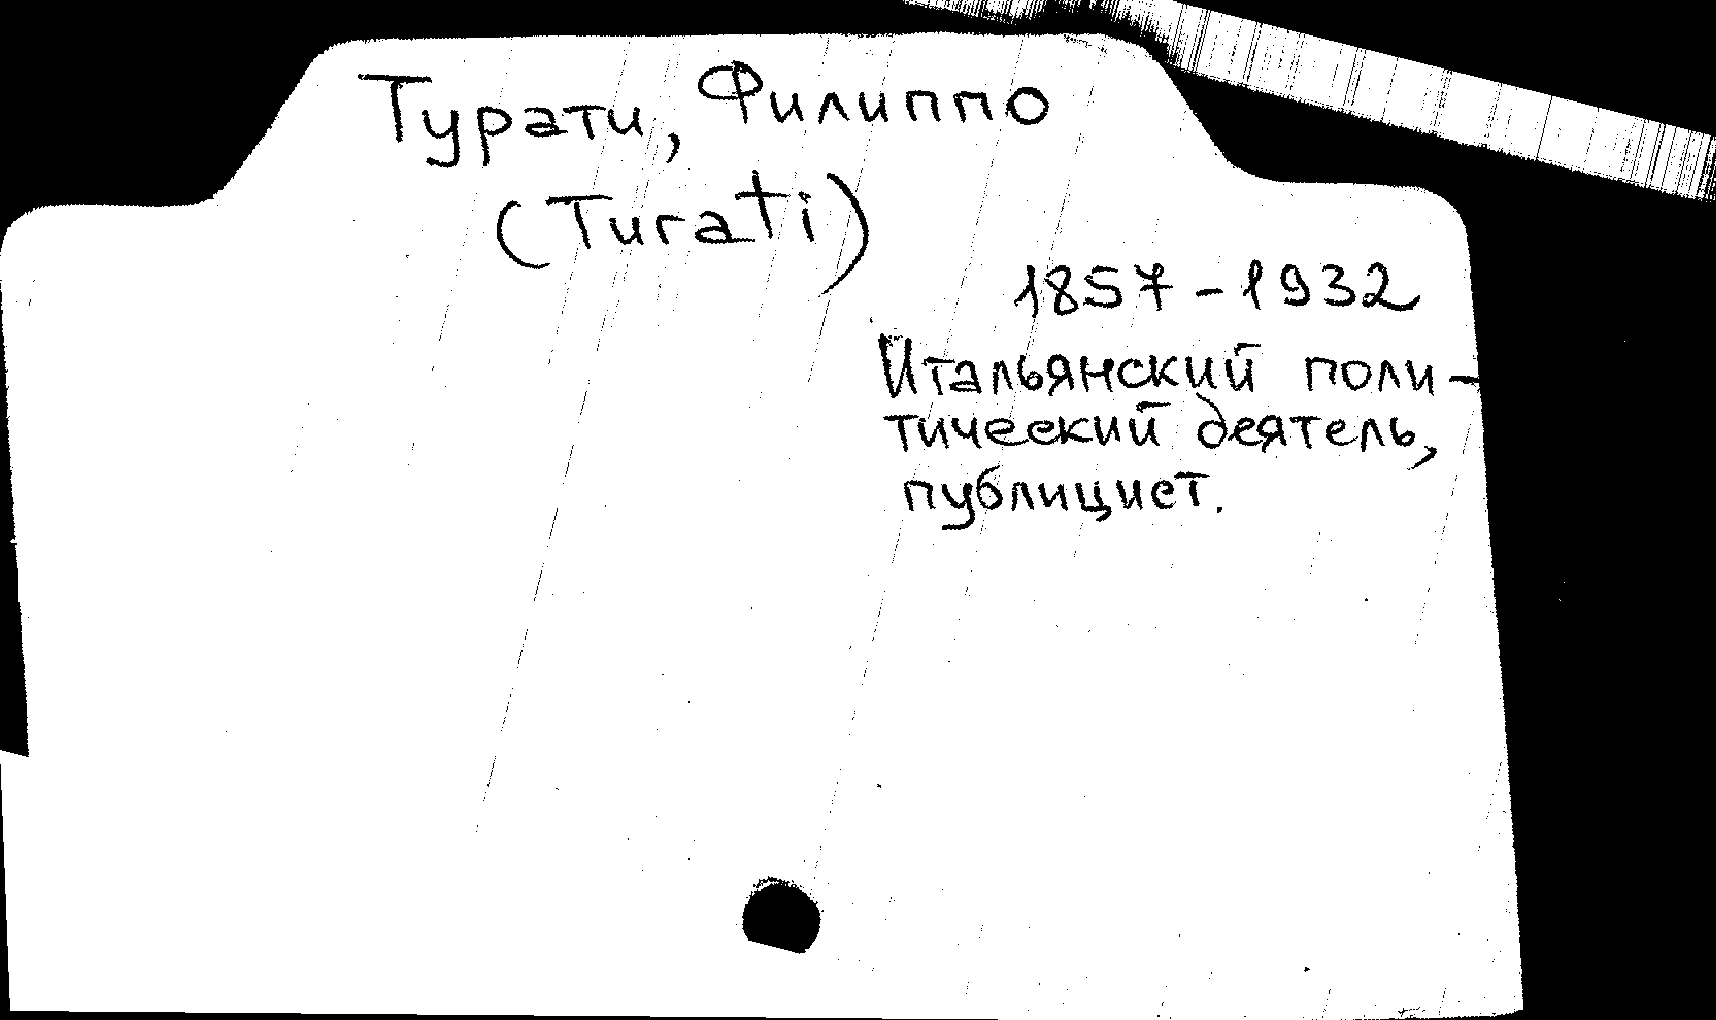 Турати, Филиппо
(Turati)
1857-1932
Итальянский поли-
тический деятель,
публицист.